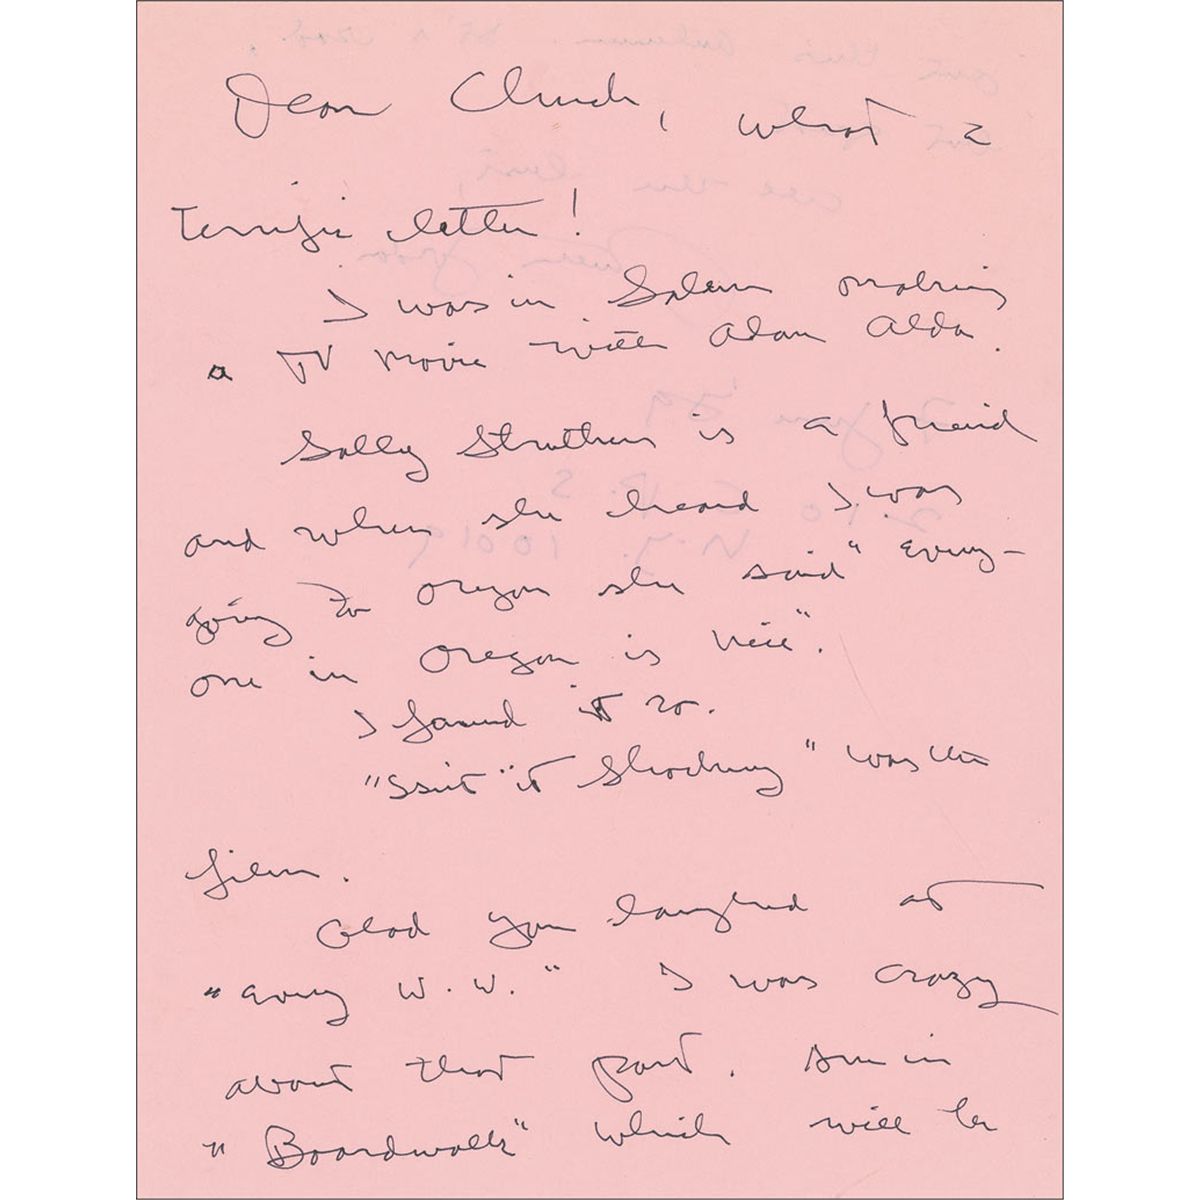 Dear Chuck, what a
Terrific letter!
I was in Salem making
a TV movie with Alan Alda.
Sally Struthers is a friend
and when she heard I was
going to Oregon she said "Every-
one in Oregon is nice".
I found it so.
"Isn't "it Shocking" was the
film.
Glad you laughed at
"Every W. W." I was crazy
about that part. Am in
"Boardwalk" which will be